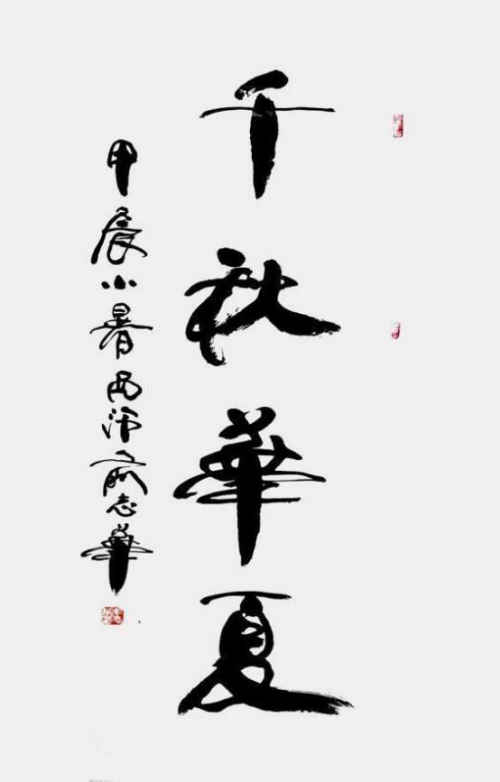 千秋華夏
甲辰小暑西浦俞志華